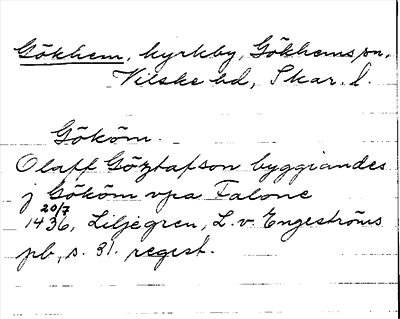 Gökhem, kyrkby, Gökhems sn,
Vilske hd, Skar. l.
Gököm.
Olaff Göztafson byggiandes
j Gököm vpa Falone
20/7
1436, Liljegren, L. v Engeströms
pb, s. 31. regist.